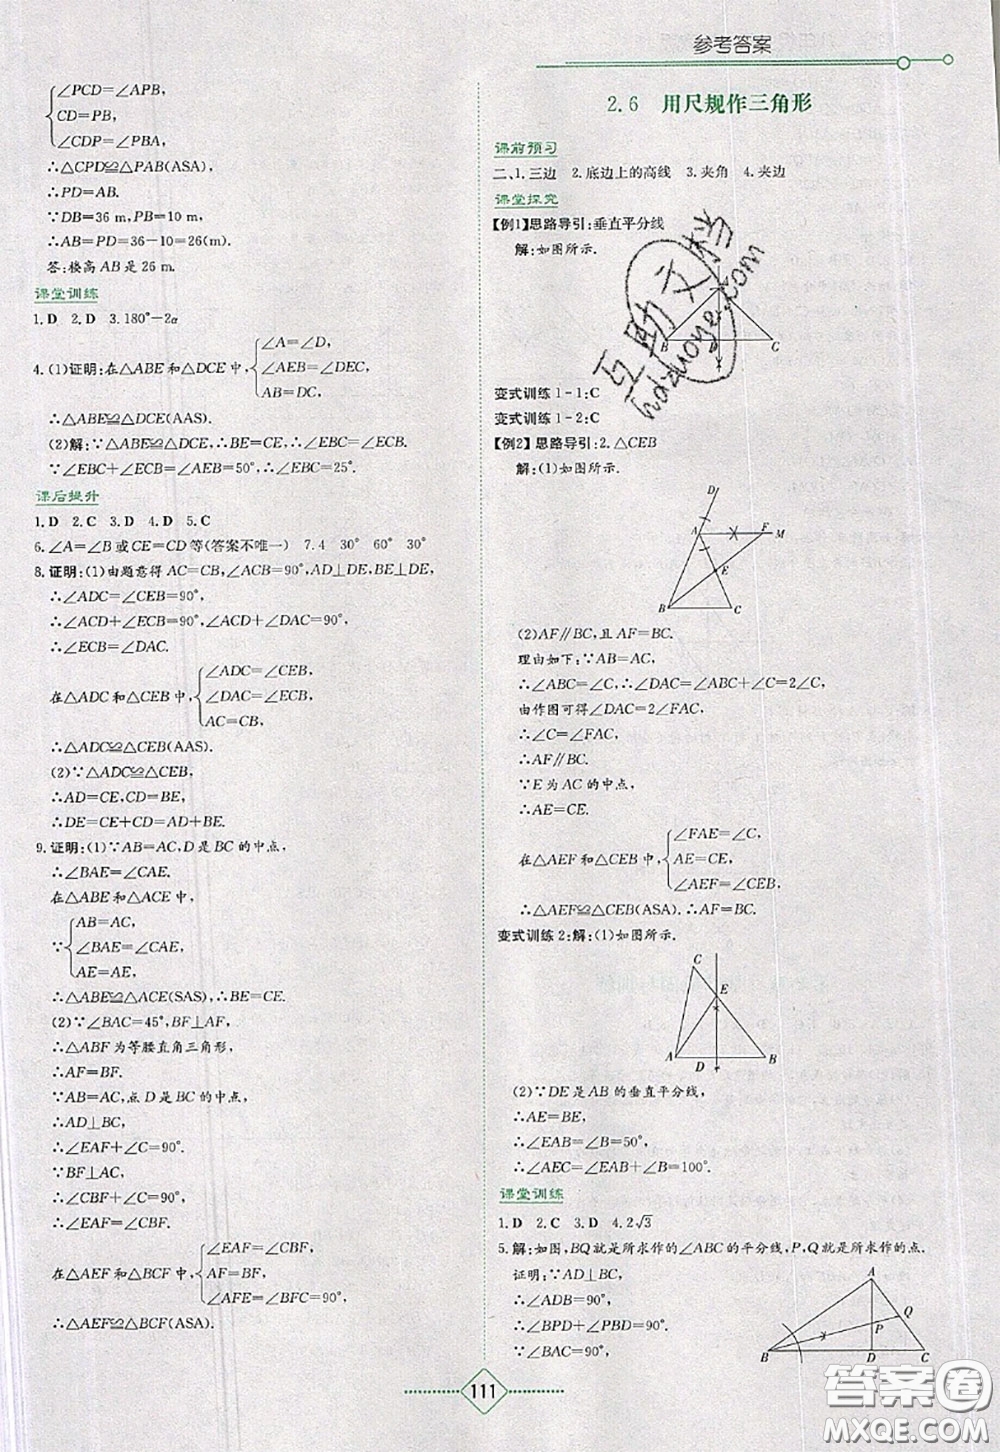 参考答案
∠PCD=∠APB,
CD=PB,
∠CDP=∠PBA,
∴△CPD≌△PAB(ASA).
∴PD=AB.
∵DB=36 m,PB=10 m,
∴AB=PD=36-10=26(m).
答:楼高AB是26 m.
课堂训练
1.D 2.D 3.180°-2α
4.(1)证明:在△ABE和△DCE中,
∠A=∠D,
∠AEB=∠DEC,
AB=DC,
∴△ABE≌△DCE(AAS).
(2)解:∵△ABE≌△DCE,∴BE=CE,∴∠EBC=∠ECB.
∵∠EBC+∠ECB=∠AEB=50°,∴∠EBC=25°.
课后提升
1.D 2.C 3.D 4.D 5.C
6.∠A=∠B或CE=CD等(答案不唯一) 7.4 30° 60° 30°
8.证明:(1)由题意得AC=CB,∠ACB=90°,AD⊥DE,BE⊥DE,
∴∠ADC=∠CEB=90°,
∴∠ACD+∠ECB=90°,∠ACD+∠DAC=90°,
∴∠ECB=∠DAC.
在△ADC和△CEB中,
∠ADC=∠CEB,
∠DAC=∠ECB,
AC=CB,
∴△ADC≌△CEB(AAS).
(2)∵△ADC≌△CEB,
∴AD=CE,CD=BE,
∴DE=CE+CD=AD+BE.
9.证明:(1)∵AB=AC,D是BC的中点,
∴∠BAE=∠CAE.
在△ABE和△ACE中,
AB=AC,
∵∠BAE=∠CAE,
AE=AE,
∴△ABE≌△ACE(SAS),∴BE=CE.
(2)∵∠BAC=45°,BF⊥AF,
∴△ABF为等腰直角三角形,
∴AF=BF.
∵AB=AC,点D是BC的中点,
∴AD⊥BC,
∴∠EAF+∠C=90°.
∵BF⊥AC,
∴∠CBF+∠C=90°,
∴∠EAF=∠CBF.
在△AEF和△BCF中,
∠EAF=∠CBF,
AF=BF,
∠AFE=∠BFC=90°,
∴△AEF≌△BCF(ASA).
2.6 用尺规作三角形
课前预习
二、1.三边 2.底边上的高线 3.夹角 4.夹边
课堂探究
【例1】思路导引:垂直平分线
解:如图所示.
B D C
变式训练1-1:C
变式训练1-2:C
【例2】思路导引:2.△CEB
解:(1)如图所示.
D
A F M
E
B C
(2)AF∥BC,且AF=BC.
理由如下:∵AB=AC,
∴∠ABC=∠C,∴∠DAC=∠ABC+∠C=2∠C,
由作图可得∠DAC=2∠FAC,
∴∠C=∠FAC,
∴AF∥BC.
∵E为AC的中点,
∴AE=CE.
在△AEF和△CEB中,
∠FAE=∠C,
AE=CE,
∠AEF=∠CEB,
∴△AEF≌△CEB(ASA).∴AF=BC.
变式训练2:解:(1)如图所示.
C
E
A D B
(2)∵DE是AB的垂直平分线,
∴AE=BE,
∴∠EAB=∠B=50°,
∴∠AEC=∠EAB+∠B=100°.
课堂训练
1.D 2.C 3.D 4.2√3
5.解:如图,BQ就是所求作的∠ABC的平分线,P,Q就是所求作的点.
证明:∵AD⊥BC,
∴∠ADB=90°,
∴∠BPD+∠PBD=90°.
∵∠BAC=90°,
A
Q
P
B D C
111
互助文档
hdzuoye.com
答案圈
MXQE.COM